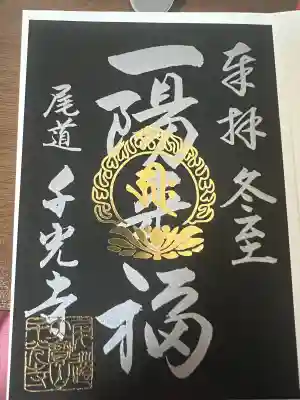 奉拝 冬至
一陽来福
尾道 千光寺